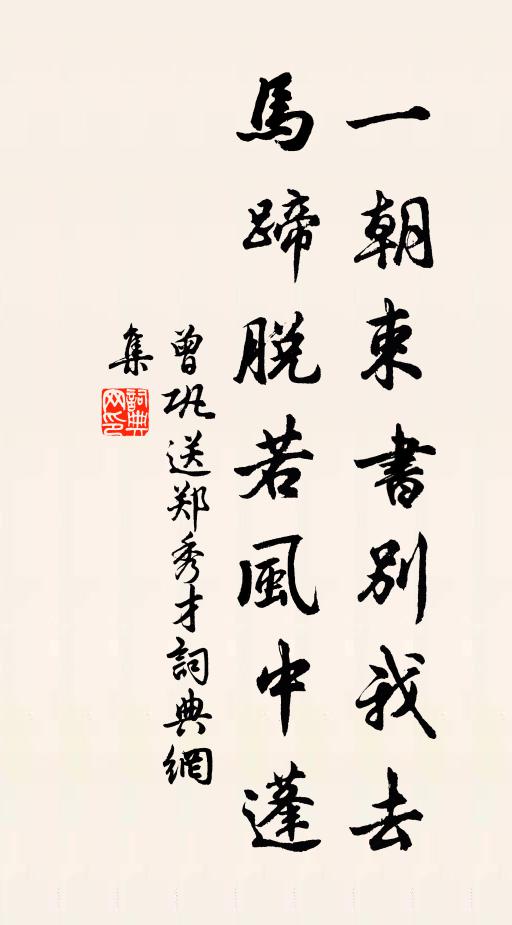 一朝束書別我去
馬蹄脱若風中蓬
曾巩送郑秀才詞典網
集
詞典
网印